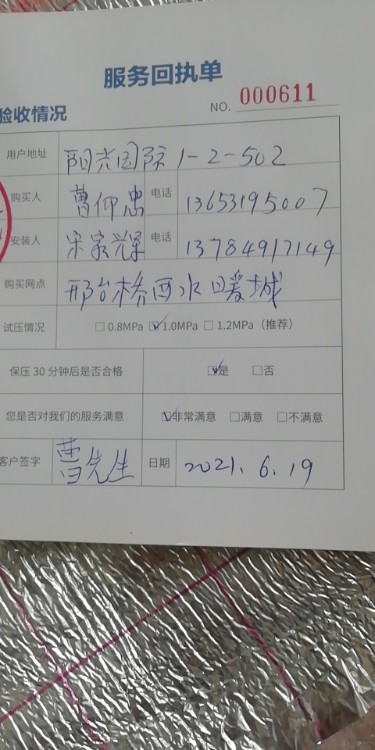 服务回执单
验收情况
NO. 000611
用户地址 阳光国际 1-2-502
购买人 曹仰忠 电话 13653195007
安装人 宋家辉 电话 13784917149
购买网点 邢台桥西水暖城
试压情况 □0.8MPa ☑1.0MPa □1.2MPa（推荐）
保压30分钟后是否合格 ☑是 □否
您是否对我们的服务满意 ☑非常满意 □满意 □不满意
客户签字 曹先生 日期 2021.6.19